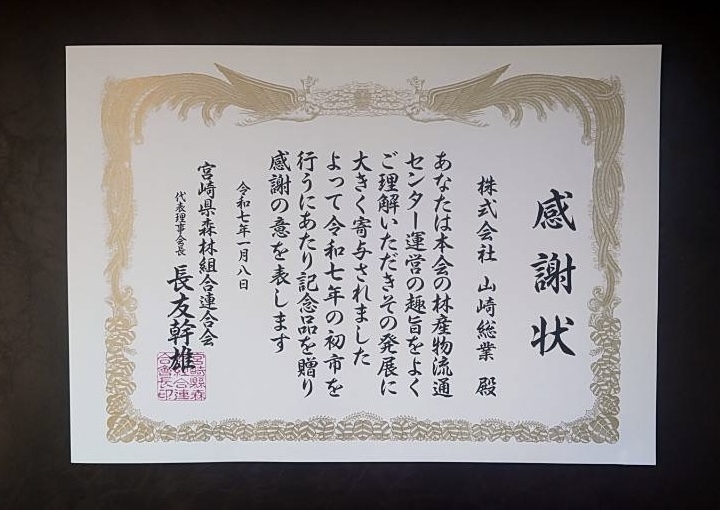 感謝状
株式会社 山崎総業 殿
あなたは本会の林産物流通
センター運営の趣旨をよく
ご理解いただきその発展に
大きく寄与されました
よって令和七年の初市を
行うにあたり記念品を贈り
感謝の意を表します
令和七年一月八日
宮崎県森林組合連合会
代表理事会長 長友幹雄